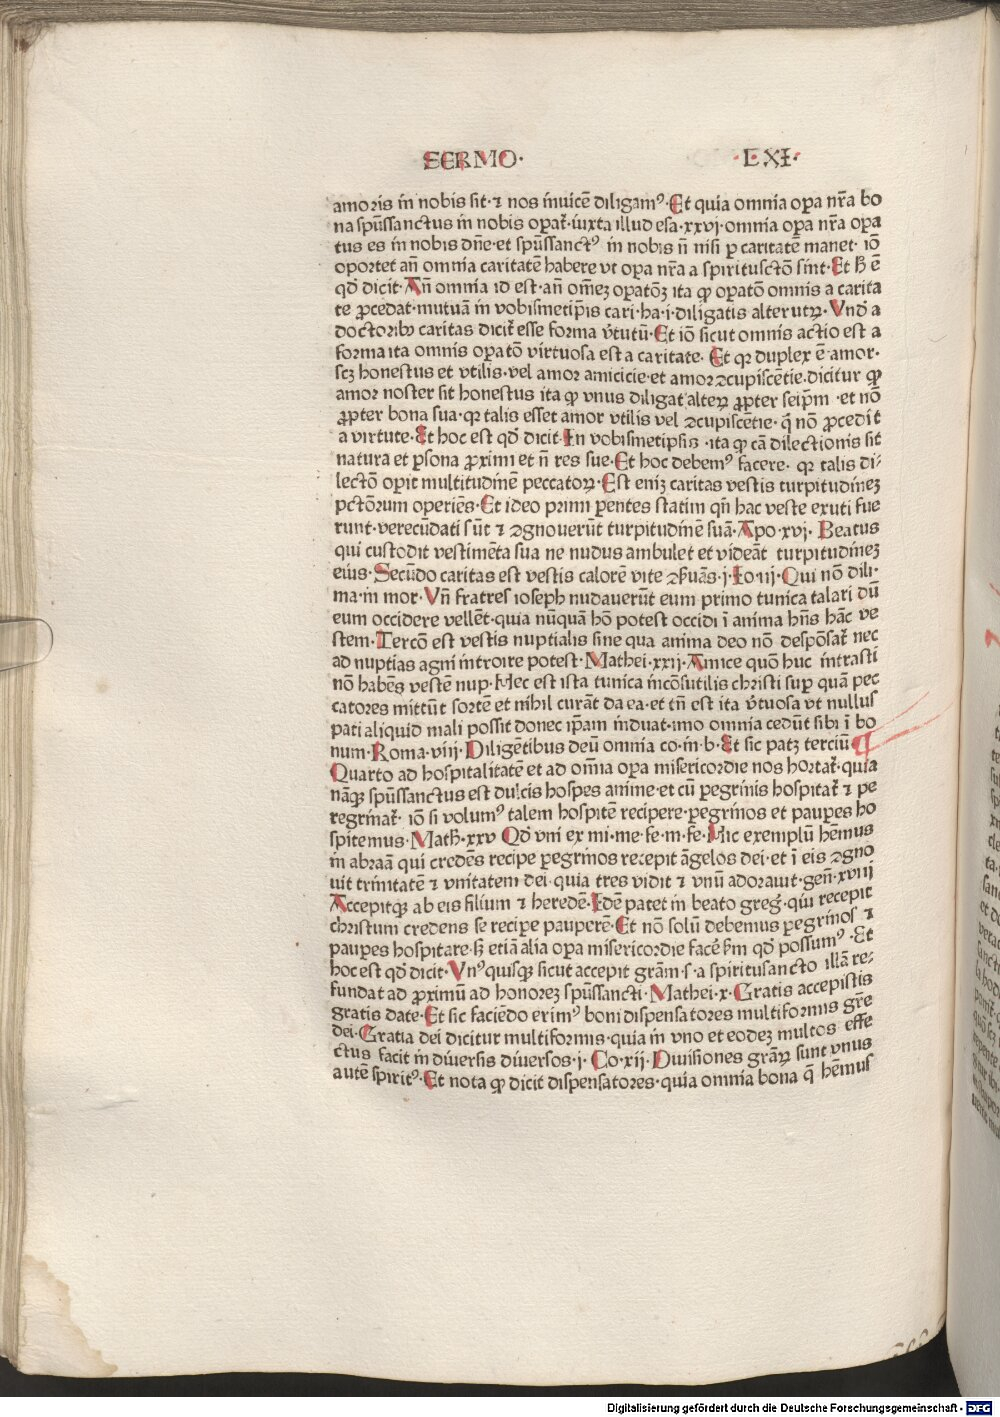 SERMO· ·LXI·
amoris in nobis sit· ⁊ nos inuicē diligamꝰ· Et quia omnia oꝑa nr̄a bo
na spūssanctus in nobis oꝑat᷑· iuxta illud esa· xxvj· omnia oꝑa nr̄a oꝑa
tus es in nobis dn̄e· et spūssanctꝰ in nobis n̄ nisi ꝑ caritatē manet· iō
oportet an̄ omnia caritatē habere vt oꝑa nr̄a a spiritusctō sint· Et hͦ ē
qd̄ dicit· An̄ omnia id est· an̄ omnēꝫ oꝑatōꝫ ita ꝙ oꝑatō omnis a carita
te ꝓcedat· mutuā in vobismetip̄is cari· ha· i· diligatis alterutꝝ· Vnd̄ a
doctoribꝫ caritas dicit᷑ esse forma v̄tutū· Et iō sicut omnis actio est a
forma ita omnis oꝑatō virtuosa est a caritate· Et qꝛ duplex ē amor·
scꝫ honestus et vtilis· vel amor amicicie· et amor ꝯcupiscētie· dicitur ꝙ
amor noster sit honestus ita ꝙ vnus diligat alteꝝ ꝓpter seip̄m· et nō
ꝓpter bona sua· qꝛ talis esset amor vtilis vel ꝯcupiscētie· q̄ nō ꝓcedit
a virtute· Et hoc est qd̄ dicit· In vobismetipsis· ita ꝙ cā dilectionis sit
natura et ꝑsona ꝓximi et n̄ res sue· Et hoc debemꝰ facere· qꝛ talis di-
lectō oꝑit multitudinē peccatoꝝ· Est eniꝫ caritas vestis turpitudineꝫ
pctōrum operiēs· Et ideo primi ꝑentes statim qn̄ hac veste exuti fue
runt· verecūdati sūt ⁊ ꝯgnouerūt turpitudinē suā· Apo· xvj· Beatus
qui custodit vestimēta sua ne nudus ambulet et videāt turpitudineꝫ
eius· Secūdo caritas est vestis calorē vite ꝯẜuās· j· Io· iij· Qui nō dili·
ma· in mor· Vn̄ fratres ioseph nudauerūt eum primo tunica talari dū
eum occidere vellēt· quia nūquā hō potest occidi ī anima hn̄s hāc ve
stem· Tercō est vestis nuptialis sine qua anima deo nō despōsat᷑ nec
ad nuptias agni introire potest· Mathei· xxij· Amice quō huc intrasti
nō habēs vestē nup· Hec est ista tunica incōsutilis christi suꝑ quā pec
catores mittūt sortē et nihil curāt da ea· et tn̄ est ita v̄tuosa vt nullus
pati aliquid mali possit donec ip̄am induat· imo omnia cedūt sibi ī bo
num· Roma· viij· Diligētibus deū omnia co· in· b· Et sic patꝫ terciū ¶
Quarto ad hospitalitatē et ad om̄ia oꝑa misericordie nos hortat᷑· quia
nāqꝫ spūssanctus est dulcis hospes anime· et cū ꝑegrinis hospitat᷑ ⁊ pe
regrinat᷑· iō si volumꝰ talem hospitē recipere· ꝑegrinos et pauꝑes ho
spitemus· Matħ· xxv Qd̄ vni ex mi· me· fe· m· fe· Hic exemplū hēmus
in abraā qui credēs recipe ꝑegrinos recepit āgelos dei· et ī eis ꝯgno
uit trinitatē ⁊ vnitatem dei· quia tres vidit ⁊ vnū adorauit· gen̄· xviij
Accepitqꝫ ab eis filium ⁊ heredē· Idē patet in beato greḡ· qui recepit
christum credens se reciꝑe pauꝑerē· Et nō solū debemus ꝑegrinos ⁊
pauꝑes hospitare· sꝫ etiā alia oꝑa misericordie facē ẜm qd̄ possumꝰ· Et
hoc est qd̄ dicit· Vnꝰquisqꝫ sicut accepit grām· s· a spiritusancto illā re-
fundat ad ꝓximū ad honoreꝫ spūssancti· Mathei· x· Gratis accepistis
gratis date· Et sic faciēdo erimꝰ boni dispensatores multiformis gr̄e
dei· Gratia dei dicitur multiformis· quia in vno et eodeꝫ multos effe
ctus facit in diuersis diuersos· j· Co· xij· Diuisiones grāꝝ sunt vnus
autē spiritꝰ· Et nota ꝙ dicit dispensatores· quia omnia bona q̄ hēmus
Digitalisierung gefördert durch die Deutsche Forschungsgemeinschaft - DFG